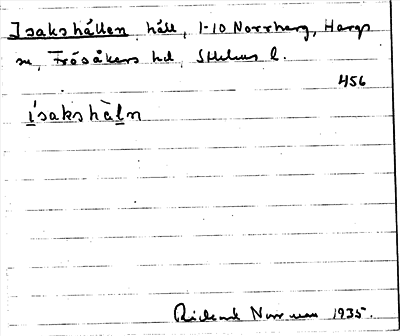 Isakshällen, häll, 1-10 Norrberg, Hargs
sn, Frösåkers hd, Sthlms l.
456
ísakshàln
Rickard Norrman 1935.